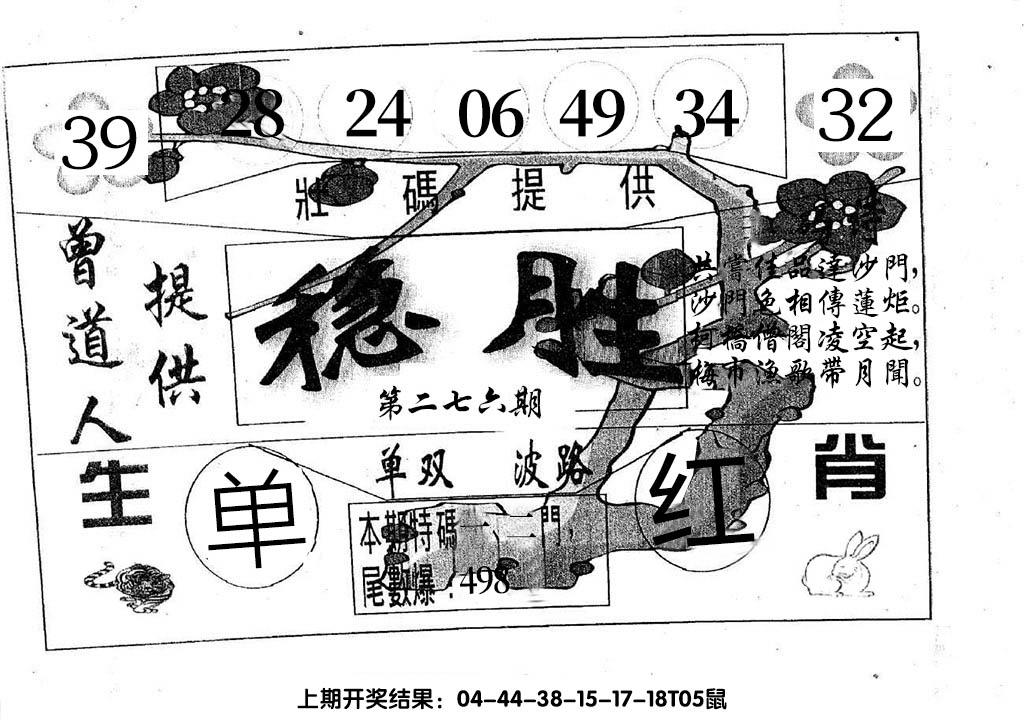 39 28 24 06 49 34 32
壯碼提供
曾道人
提供
稳胜
第二七六期
共嘗佳品達沙門，
沙門色相傳蓮炬。
柯橋僧閣凌空起，
梅市漁歌帶月聞。
单双 波路
生肖
单
红
本期特碼一、二門，
尾數爆：498
上期开奖结果：04-44-38-15-17-18T05鼠